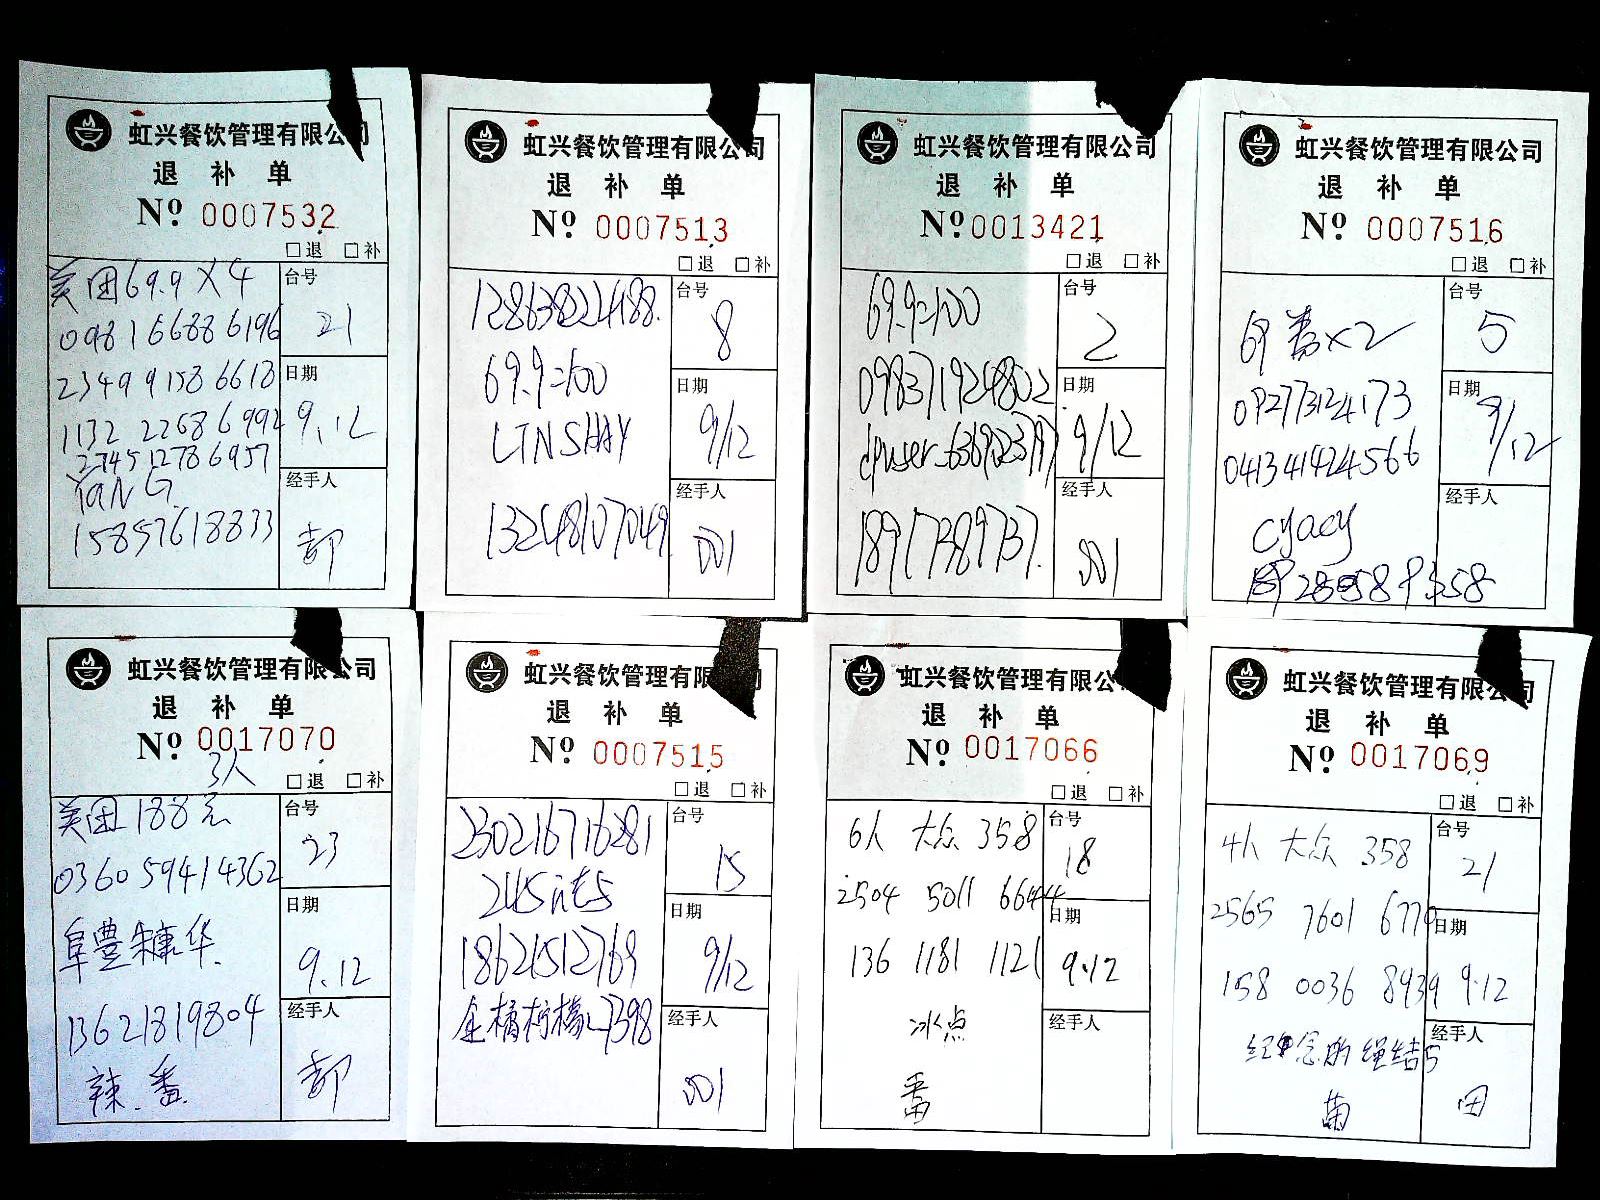 虹兴餐饮管理有限公司
退 补 单
Nº 0007532
□退 □补
美团69.9×4
台号
21
0981 6688 6196
2349 9158 6618
日期
9.12
1132 2268 6992
2745 1278 6957
YANG
经手人
15857618833
虹兴餐饮管理有限公司
退 补 单
Nº 0007513
□退 □补
128638224188
台号
8
69.9=100
日期
9/12
LINSHAY
经手人
13248107049
001
虹兴餐饮管理有限公司
退 补 单
Nº 0013421
□退 □补
69.9=100
台号
2
098371924802
日期
9/12
经手人
18917389737
001
虹兴餐饮管理有限公司
退 补 单
Nº 0007516
□退 □补
台号
5
×2
日期
9/12
092773124173
041341424566
经手人
cyacy
虹兴餐饮管理有限公司
退 补 单
Nº 0017070
3人
□退 □补
美团188元
台号
23
0360 5941 4362
日期
9.12
华
13621819804
经手人
辣.番
虹兴餐饮管理有限公司
退 补 单
Nº 0007515
□退 □补
230216716281
台号
15
日期
9/12
18621512769
金橘柠檬
经手人
001
虹兴餐饮管理有限公司
退 补 单
Nº 0017066
□退 □补
6人 大众 358
台号
18
2504 5011 6644
日期
9.12
136 1181 1121
冰点
经手人
番
虹兴餐饮管理有限公司
退 补 单
Nº 0017069
□退 □补
4人 大众 358
台号
21
2565 7601 6770
日期
9.12
158 0036 8939
经手人
田